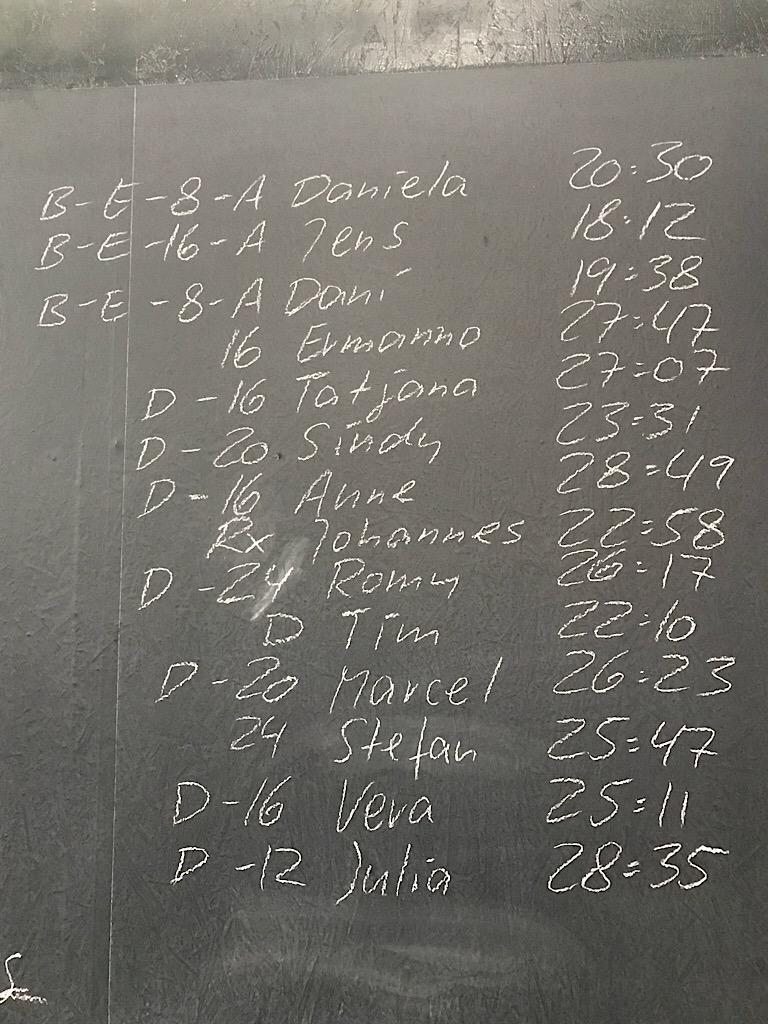 B-E-8-A Daniela 20:30
B-E-16-A Jens 18:12
B-E-8-A Dani 19:38
16 Ermanno 27:47
D-16 Tatjana 27:07
D-20 Sindy 23:31
D-16 Anne 28:49
Rx Johannes 22:58
D-24 Romy 26:17
D Tim 22:10
D-20 Marcel 26:23
24 Stefan 25:47
D-16 Vera 25:11
D-12 Julia 28:35